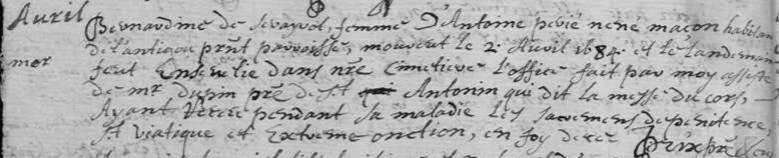 Auril Bernardine de seuayrot, femme d'Antoine perié nené maçon habitan
de lantigou prnt parroisse, mourut le 2. Auril 1684. et le landemain
mor feut Enseuelie dans nre Cimetiere l'office fait par moy assisté
de mr dupin pre de St Antonin qui dit la messe du cors,
Ayant Receu pendant sa maladie les sacremens de penitence,
St viatique et Extreme onction, en foy de ce